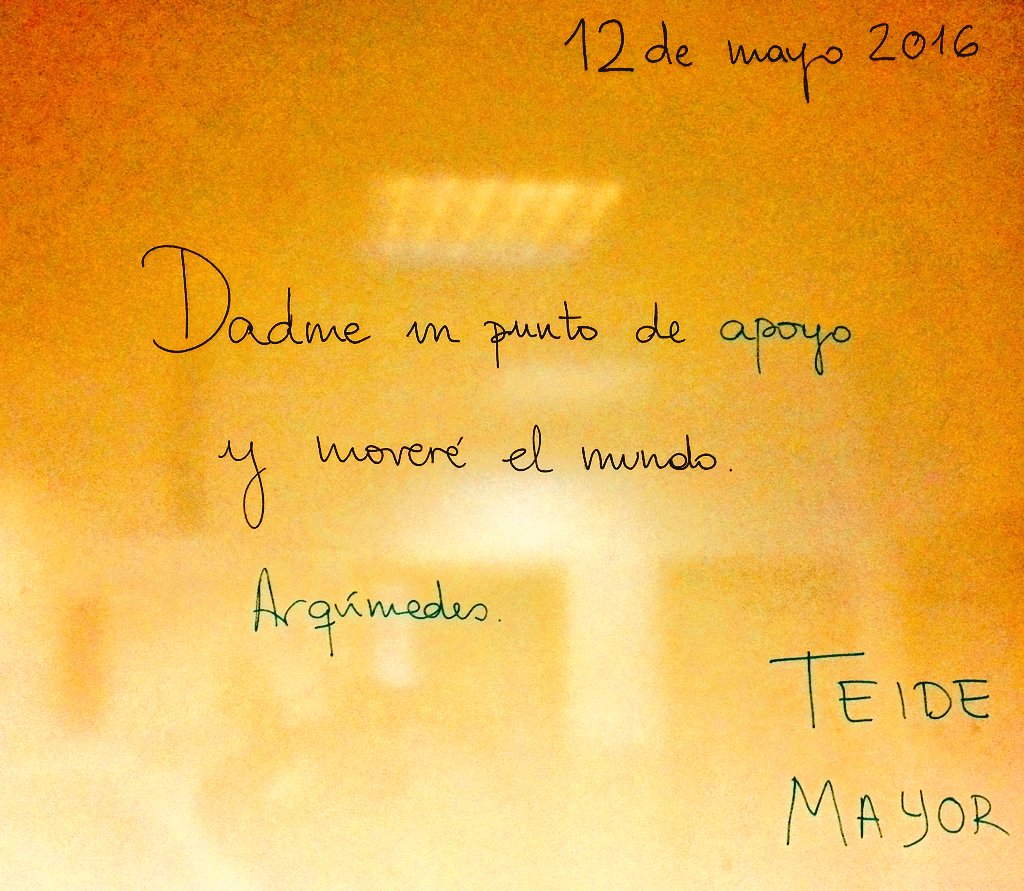 12 de mayo 2016
Dadme un punto de apoyo
y moveré el mundo.
Arquímedes.
TEIDE
MAYOR